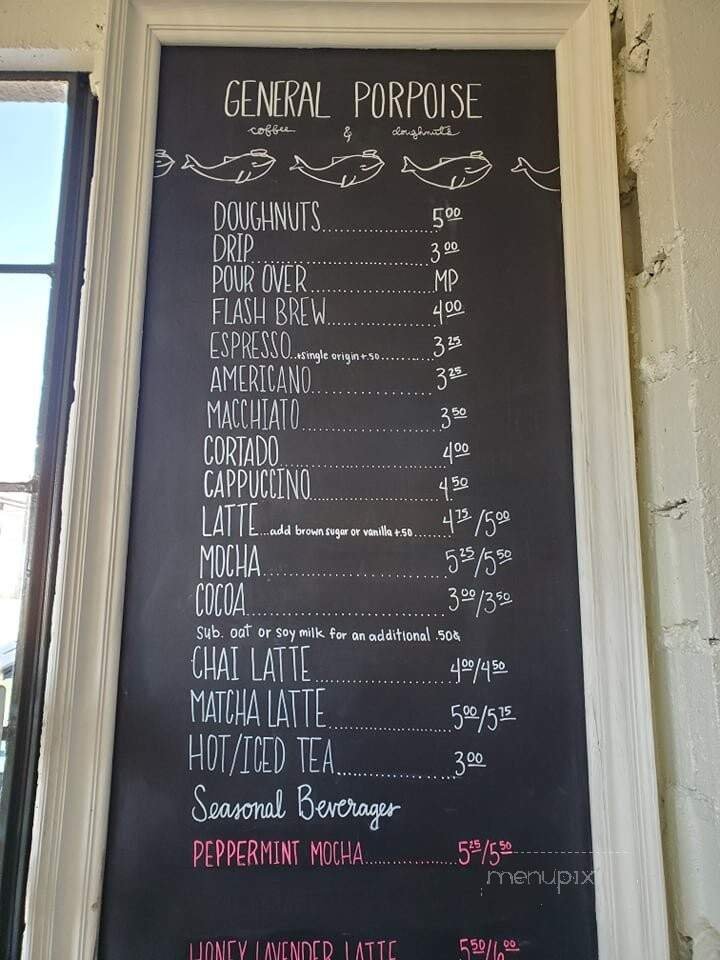 GENERAL PORPOISE
coffee & doughnuts
DOUGHNUTS 5.00
DRIP 3.00
POUR OVER MP
FLASH BREW 4.00
ESPRESSO +single origin +.50 3.25
AMERICANO 3.25
MACCHIATO 3.50
CORTADO 4.00
CAPPUCCINO 4.50
LATTE add brown sugar or vanilla +.50 4.75/5.00
MOCHA 5.25/5.50
COCOA 3.00/3.50
Sub. oat or soy milk for an additional .50¢
CHAI LATTE 4.00/4.50
MATCHA LATTE 5.00/5.75
HOT/ICED TEA 3.00
Seasonal Beverages
PEPPERMINT MOCHA 5.25/5.50
menupix
HONEY LAVENDER LATTE 5.50/6.00